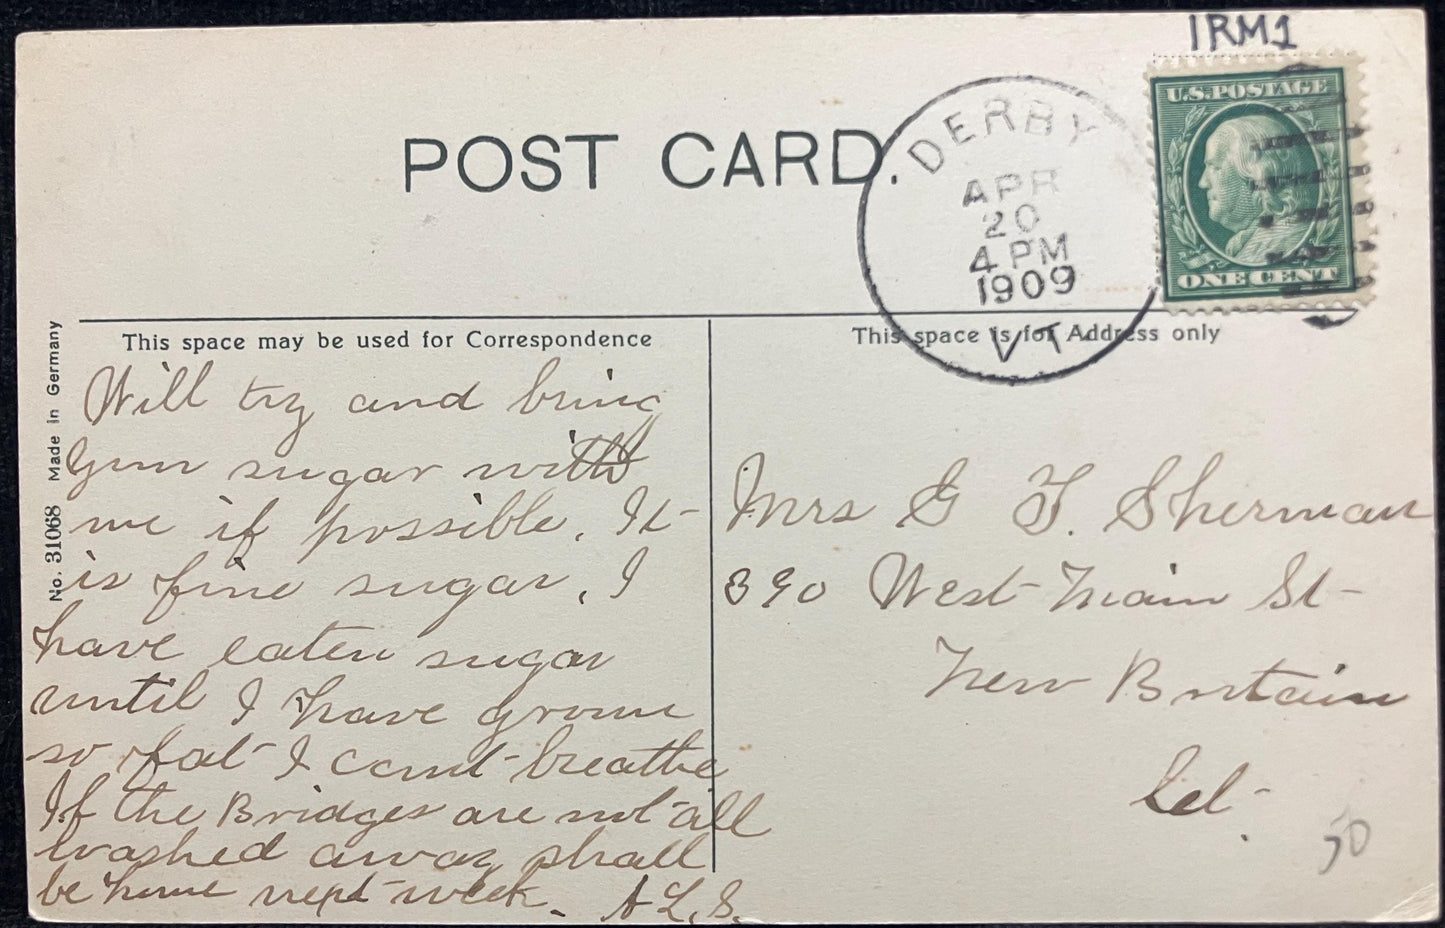 IRM1
POST CARD.
DERBY
APR
20
4 PM
1909
VT
U.S. POSTAGE
ONE CENT
No. 31068 Made in Germany
This space may be used for Correspondence
This space is for Address only
Will try and bring
Gum sugar with
me if possible. It
is fine sugar. I
have eaten sugar
until I have grown
so fat I cant breathe
If the Bridges are not all
washed away shall
be home next week.
A L. S.
Mrs G F. Sherman
390 West Main St
New Britain
50